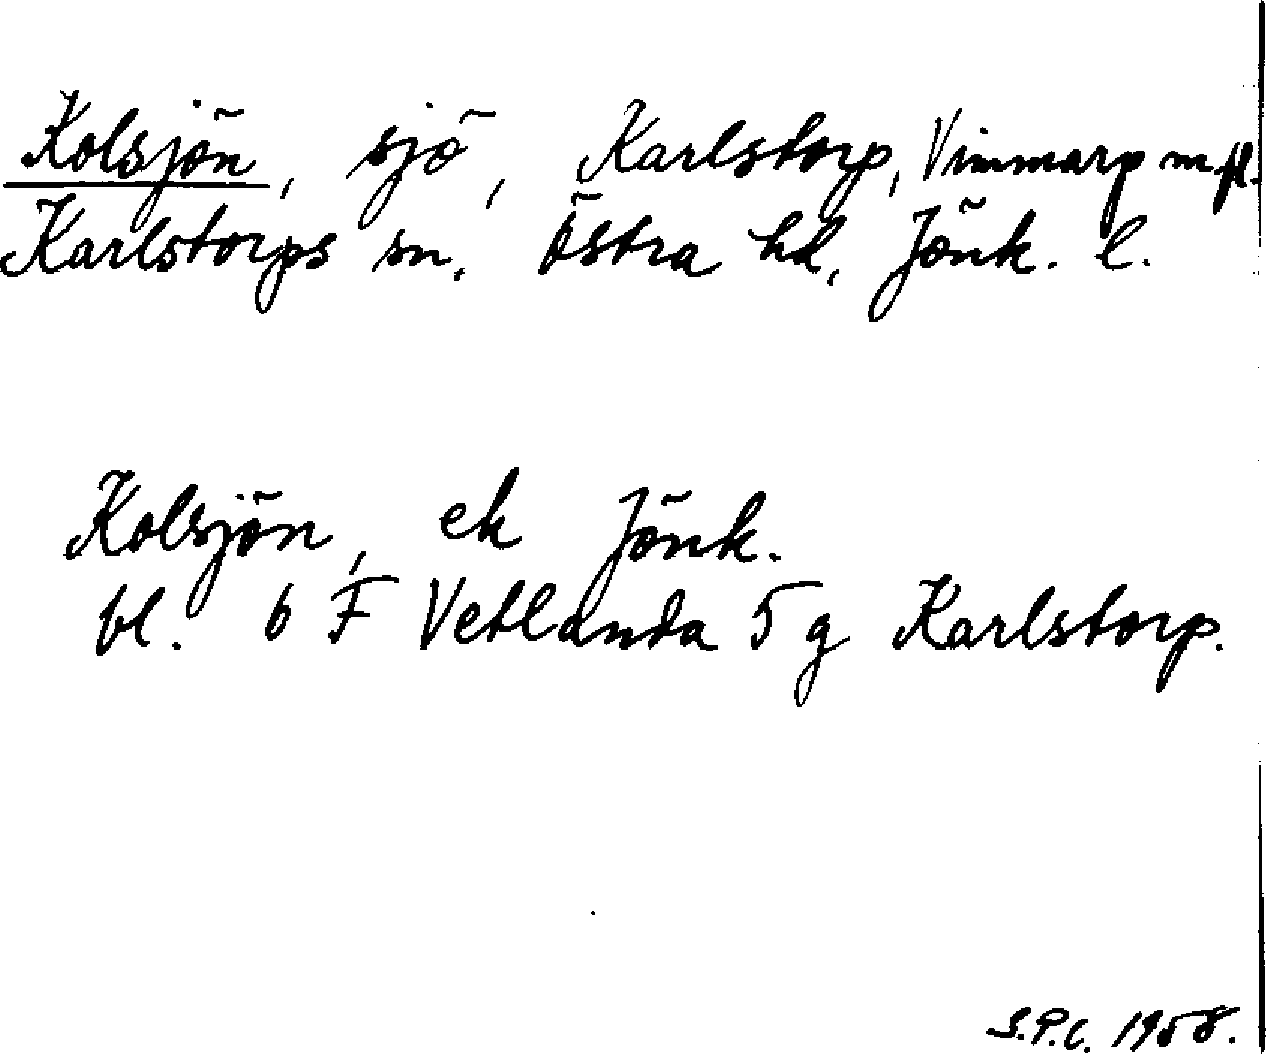 Kolsjön, sjö, Karlstorp, Vimmarp m.fl.
Karlstorps sn. Östra hd, Jönk. l.
Kolsjön, ek Jönk.
bl. 6 F Vetlanda 5 g Karlstorp.
S.P.C. 1958.